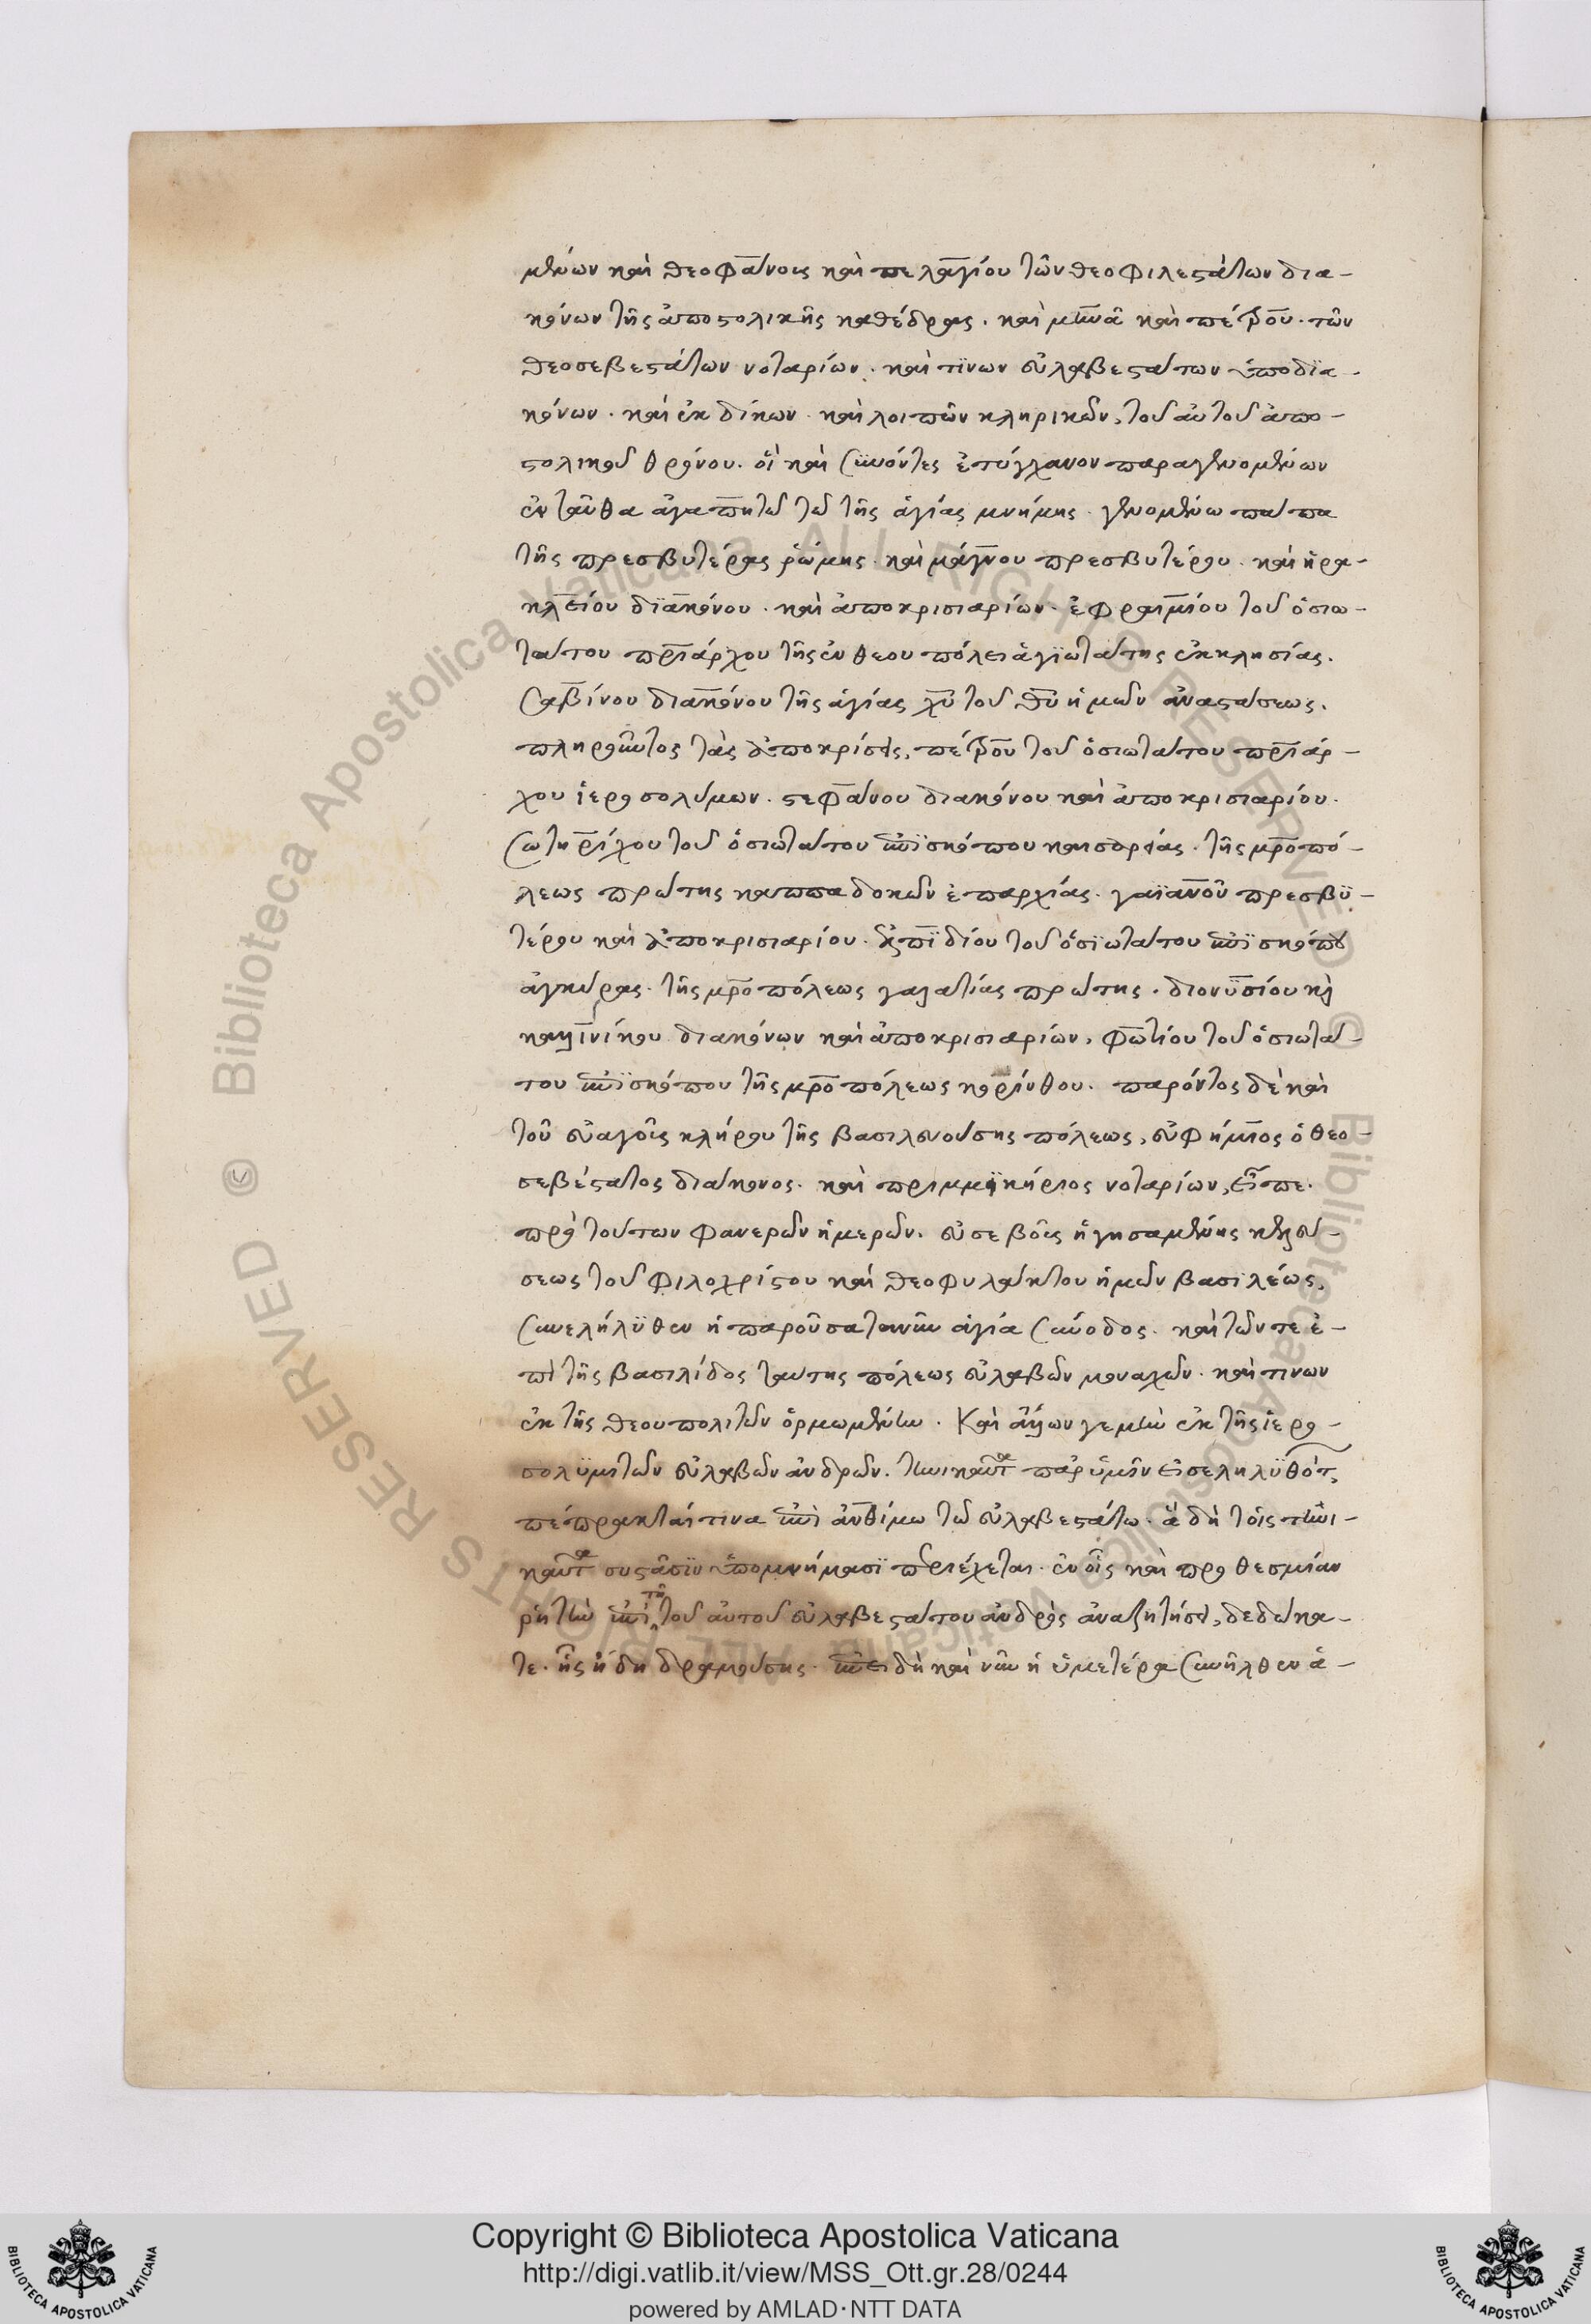 μένων καὶ θεοφάνους καὶ πελαγίου τῶν θεοφιλεστάτων δια-
κόνων τῆς ἀποστολικῆς καθέδρας. καὶ μηνᾶ καὶ πέτρου. τῶν
θεοσεβεστάτων νοταρίων. καὶ τϊνων εὐλαβεστάτων ὑποδϊα-
κόνων. καὶ ἐκδίκων. καὶ λοιπῶν κληρικῶν, τοῦ αὐτοῦ ἀπο-
στολικοῦ θρόνου. οἳ καὶ συνόντες ἐτύγχανον παραγενομένων
ἐνταῦθα ἀγαπητῶ τῶ τῆς ἁγίας μνήμης. γενομένω πάπα
τῆς πρεσβυτέρας ῥώμης. καὶ μάγνου πρεσβυτέρου. καὶ ἡρα-
κλείου δϊακόνου. καὶ ἀποκρισιαρίων. ἐφραιμίου τοῦ ὁσιω-
τάτου πριάρχου τῆς ἐν θεουπόλει ἁγϊωτάτης ἐκκλησίας.
σαβίνου διακόνου τῆς ἁγίας χυ τοῦ θυ ἡμῶν ἀναστάσεως.
πληροῦντος τὰς ἀποκρίσεις, πέτρου τοῦ ὁσιωτάτου πριάρ-
χου ἱεροσολύμων. στεφάνου διακόνου καὶ ἀποκρισιαρίου.
σωτηρίχου τοῦ ὁσιωτάτου ἐπϊσκόπου καισαρείας. τῆς μροπό-
λεως πρώτης καππαδοκῶν ἐπαρχίας. γαϊανοῦ πρεσβϋ-
τέρου καὶ ἀποκρισιαρίου. ἐλπϊδίου τοῦ ὁσϊωτάτου ἐπϊσκόπου
ἀγκύρας. τῆς μροπόλεως γαλατίας πρώτης. διονϋσίου κὶ
καλλϊνίκου διακόνων καὶ ἀποκρισιαρίων, φωτίου τοῦ ὁσιωτά-
του ἐπϊσκόπου τῆς μροπόλεως κορίνθου. παρόντος δὲ καὶ
τοῦ εὐαγοῦς κλήρου τῆς βασιλευούσης πόλεως, εὐφήμιος ὁ θεο-
σεβέστατος διάκονος. καὶ πριμμϊκήριος νοταρίων, εἶπε.
πρὸ τούτων φανερῶν ἡμερῶν. εὐσεβοῦς ἡγησαμένης κελεύ-
σεως τοῦ φιλοχρίστου καὶ θεοφυλάκτου ἡμῶν βασϊλέως,
συνελήλϋθεν ἡ παροῦσα τανῦν ἁγία σύνοδος. καὶ τῶν τε ἐ-
πὶ τῆς βασιλίδος ταύτης πόλεως εὐλαβῶν μοναχῶν. καὶ τινων
ἐκ τῆς θεουπολιτῶν ὁρμωμένων. Καὶ ἄλλων γεμὴν ἐκ τῆς ἱερο-
σολϋμιτῶν εὐλαβῶν ἀνδρῶν. τηνικαῦτα παρ ὑμῖν εἰσεληλϋθότων
πέπρακταί τινα ἐπὶ ἀνθίμω τῶ εὐλαβεστάτω. ἃ δὴ τοῖς τηνι-
καῦτα συστᾶσϊν ὑπομνήμασϊ περιέχεται. ἐν οἷς καὶ προθεσμίαν
ῥητὴν ἐπὶ τῆ τοῦ αὐτοῦ εὐλαβεστάτου ἀνδρὸς ἀναζητήσει, δεδώκα-
τε. ἧς ἤδη δραμούσης. ἐπειδὴ καὶ νῦν ἡ ὑμετέρα συνῆλθεν ἁ-
Copyright © Biblioteca Apostolica Vaticana
http://digi.vatlib.it/view/MSS_Ott.gr.28/0244
powered by AMLAD·NTT DATA